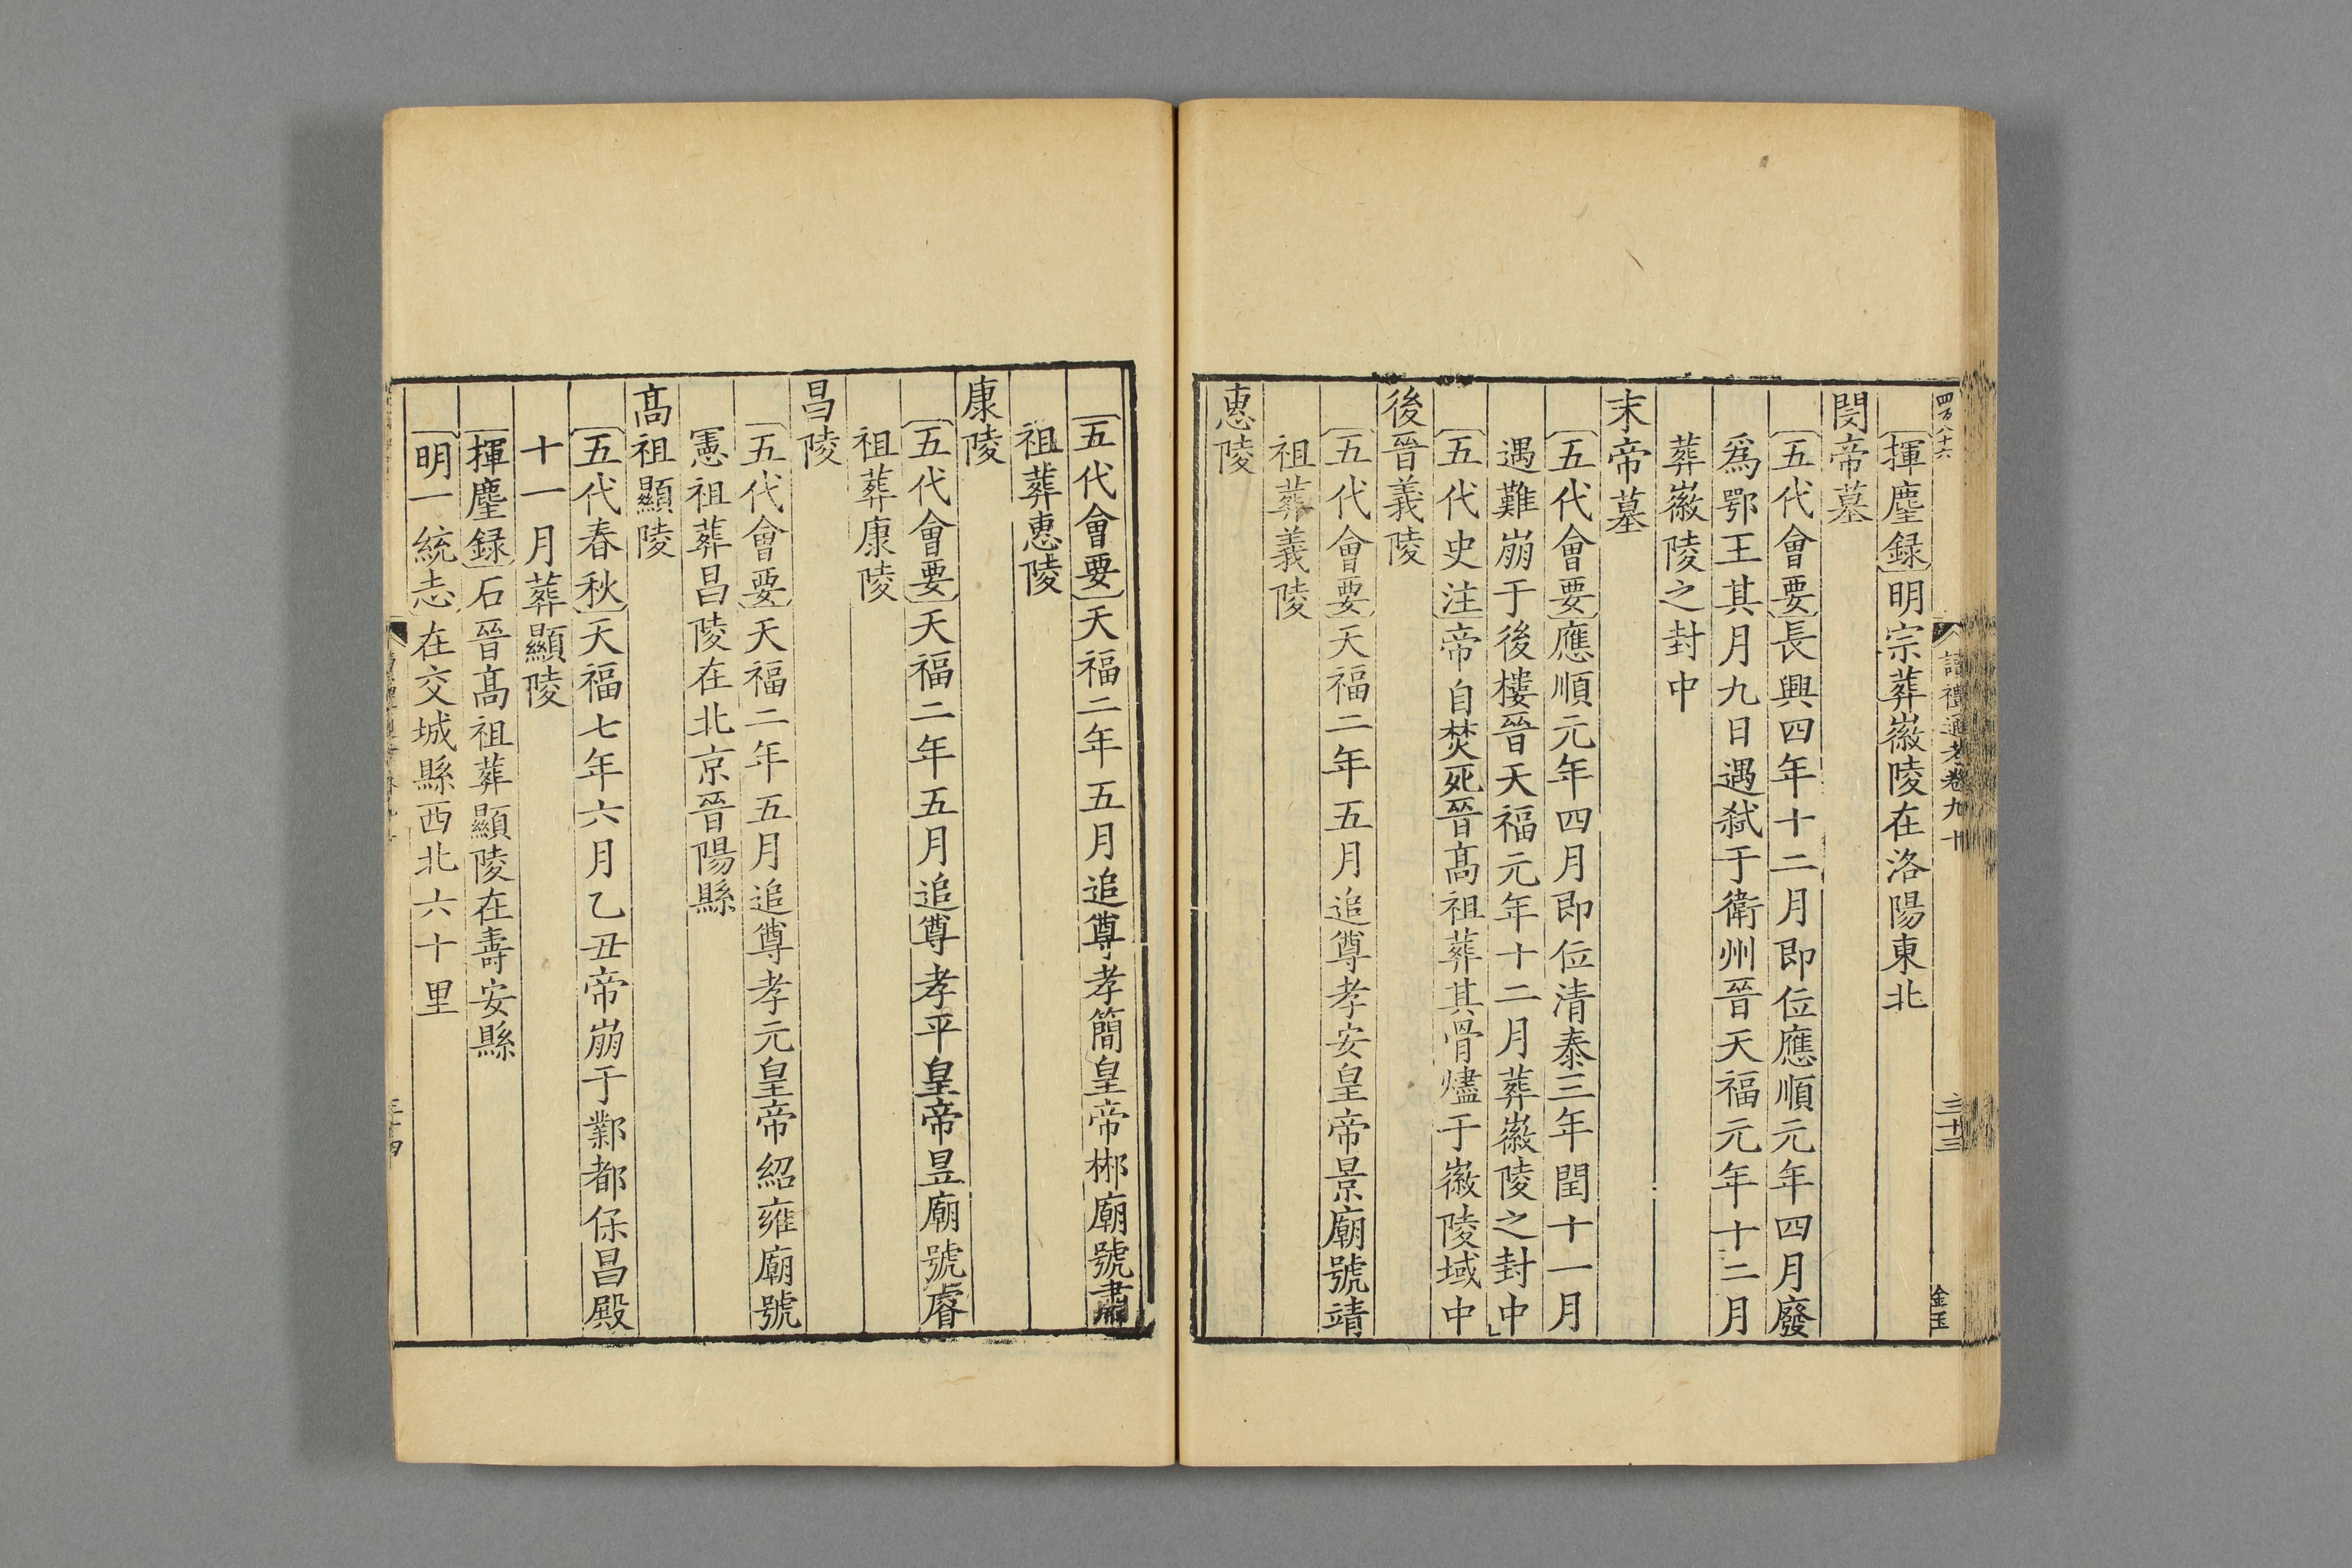 四百八十六
讀禮通考卷九十
三十三
金玉
〔揮麈録〕明宗葬徽陵在洛陽東北
閔帝墓
〔五代會要〕長興四年十二月即位應順元年四月廢
爲鄂王其月九日遇弒于衛州晉天福元年十二月
葬徽陵之封中
末帝墓
〔五代會要〕應順元年四月即位清泰三年閏十一月
遇難崩于後樓晉天福元年十二月葬徽陵之封中
〔五代史注〕帝自焚死晉髙祖葬其骨燼于徽陵域中
後晉義陵
〔五代會要〕天福二年五月追尊孝安皇帝景廟號靖
祖葬義陵
惠陵
〔五代會要〕天福二年五月追尊孝簡皇帝郴廟號肅
祖葬惠陵
康陵
〔五代會要〕天福二年五月追尊孝平皇帝昱廟號睿
祖葬康陵
昌陵
〔五代會要〕天福二年五月追尊孝元皇帝紹雍廟號
憲祖葬昌陵在北京晉陽縣
髙祖顯陵
〔五代春秋〕天福七年六月乙丑帝崩于鄴都保昌殿
十一月葬顯陵
〔揮麈録〕石晉髙祖葬顯陵在壽安縣
〔明一統志〕在交城縣西北六十里